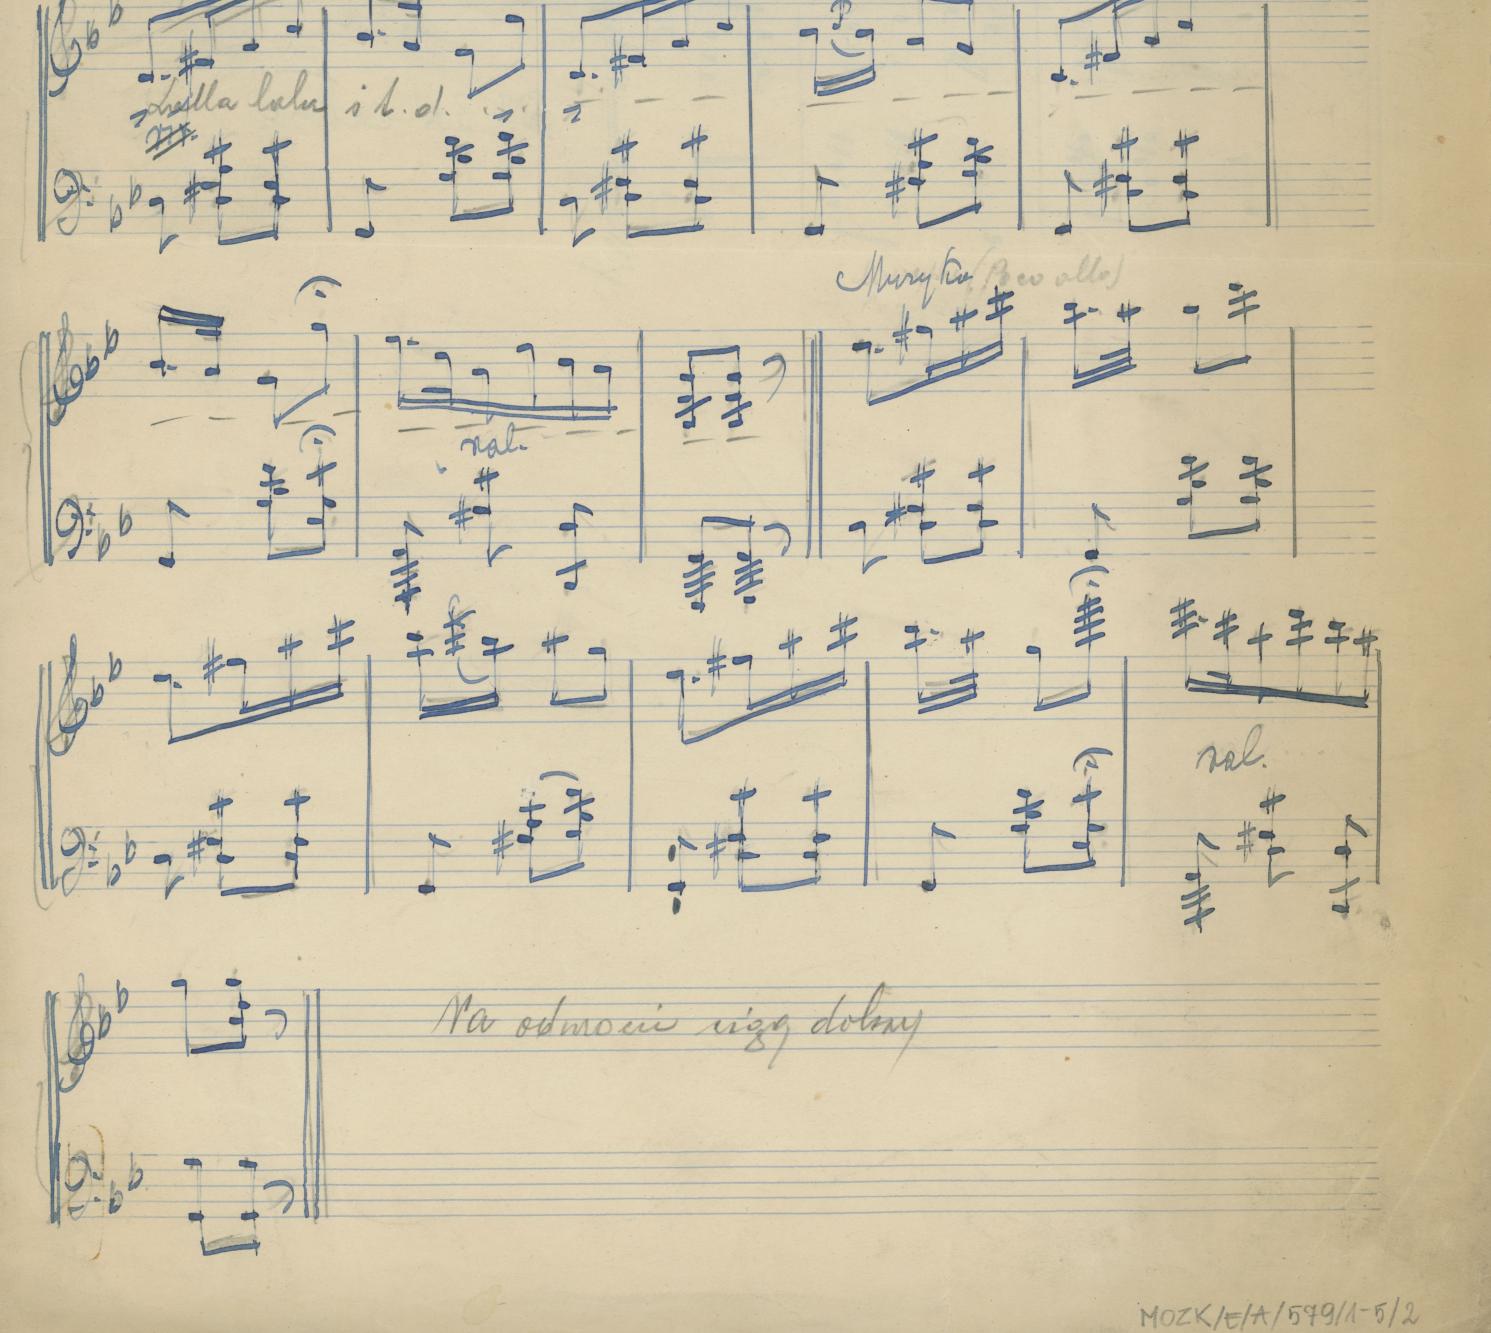 lalla lala i t.d. ...
Muzyka (Poco allo)
ral.
ral.
Na odwrocie ciąg dalszy
MOZK/E/A/579/1-5/2